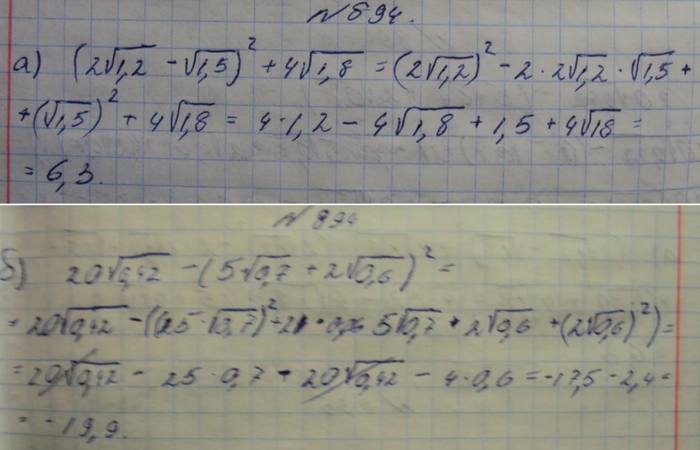 № 894.
а) (2√1,2 - √1,5)² + 4√1,8 = (2√1,2)² - 2 · 2√1,2 · √1,5 +
+ (√1,5)² + 4√1,8 = 4 · 1,2 - 4√1,8 + 1,5 + 4√18 =
= 6,3.
№ 894
б) 20√0,42 - (5√0,7 + 2√0,6)² =
= 20√0,42 - ((5 · √0,7)² + 2 · 5√0,7 · 2√0,6 + (2√0,6)²) =
= 20√0,42 - 25 · 0,7 - 20√0,42 - 4 · 0,6 = -17,5 - 2,4 =
= -19,9.